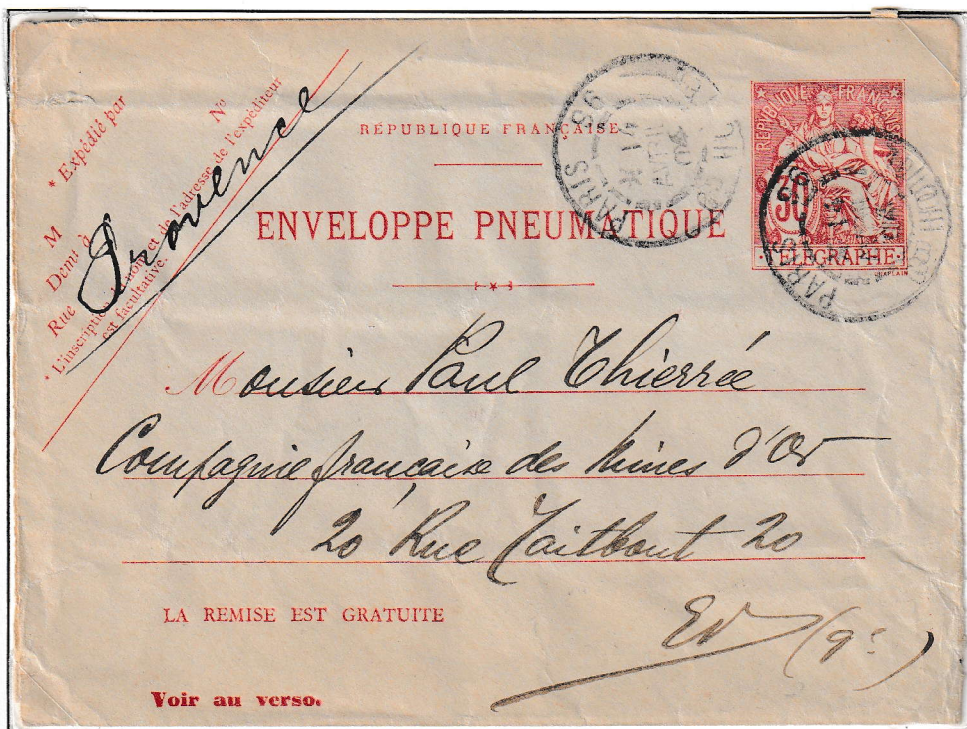 * Expédié par
M
N°
Demt à
Rue
* L'inscription du nom et de l'adresse de l'expéditeur
est facultative.
Provence
RÉPUBLIQUE FRANÇAISE
ENVELOPPE PNEUMATIQUE
REPUBLIQUE FRANÇAISE
30
TELEGRAPHE
CHAPLAIN
PARIS 98
PARIS
Monsieur Paul Thierrée
Compagnie française des Mines d'Or
20 Rue Taitbout 20
LA REMISE EST GRATUITE
EV (9e)
Voir au verso.